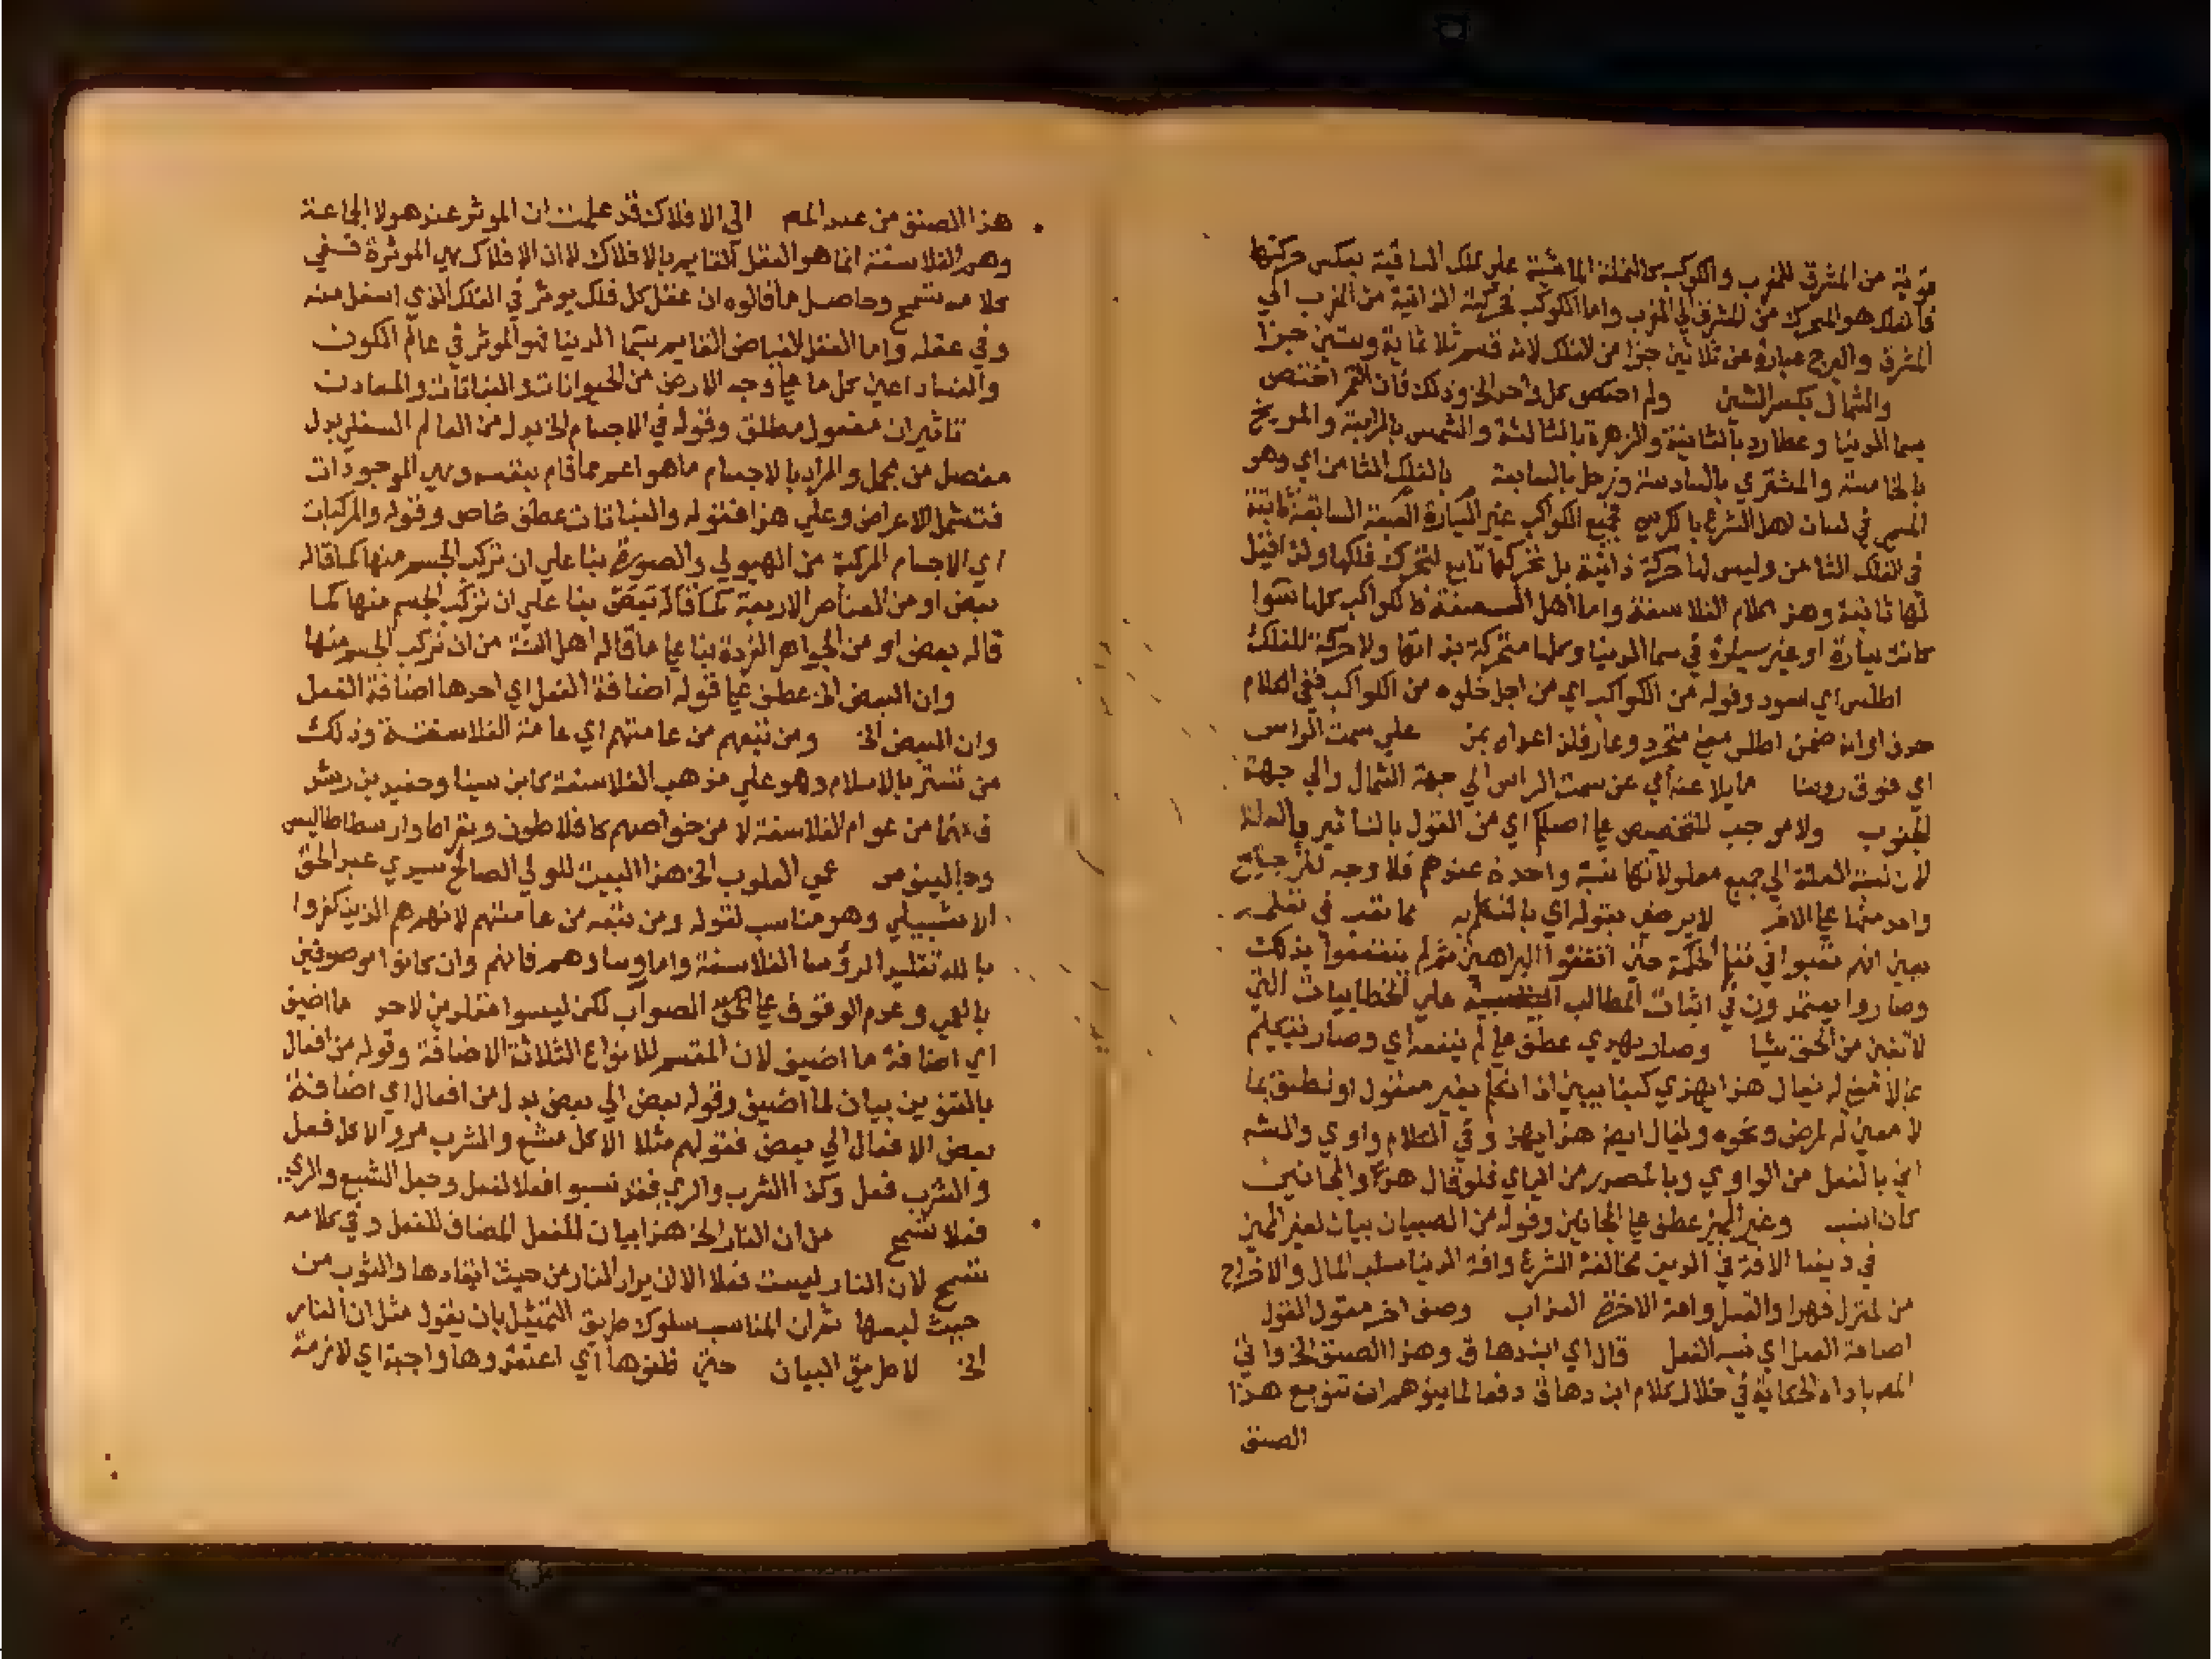 قوية من المشرق للمغرب والكوكب كالنملة الماشية على تلك الساقية بعكس حركتها
فالفلك هو المحرك من المشرق الى المغرب واما الكوكب فحركته الذاتية من المغرب الي
المشرق والبرج عبارة عن ثلاثين جزا من الفلك لانه قسم ثلاثماية وستين جزا
والشمال بكسر الشين ولم اختص كل واحد الخ وذلك فان القمر اختص
بسما الدنيا وعطارد بالثانية والزهرة بالثالثة والشمس بالرابعة والمريخ
بالخامسة والمشتري بالسادسة وزحل بالسابعة بالفلك الثامن اي وهو
المسمى في لسان اهل الشرع بالكرسي فجميع الكواكب غير السيارة السبعة السابقة ثابتة
في الفلك الثامن وليس لها حركة ذاتية بل تحركها تابع لتحرك فلكها ولذا قيل
لها ثابتة وهذا كلام الفلاسفة واما اهل السنة فالكواكب كلها سوا
كانت سيارة او غير سيارة في سما الدنيا وكلها متحركة بذاتها ولا حركة للفلك
اطلس اي اسود وقوله من الكواكب اي من اجل خلوه من الكواكب ففي الكلام
حذف او انه ضمن اطلس معنى متجرد وعار فلذا عداه بمن على سمت الراس
اي فوق روسنا مايلا عنه اي عن سمت الراس الي جهة الشمال والي جهة
الجنوب ولا موجب للتخصيص على اصلكم اي من القول بالتاثير بالعلة
لان نسبة العلة الي جميع معلولاتها نسبة واحدة عندهم فلا وجه لترجيح
واحد منها على الاخر لا يرضى بقوله اي بالتكلم به مما تعب في تعلمه
يعني انهم تعبوا في تعلم الحكمة حتى اتقنوا البراهين ثم لم ينتفعوا بذلك
وصاروا يعتمدون في اثبات المطالب على الخطابيات التي
لا تغني من الحق شيا وصار يهذي عطف على لم ينفعه اي وصار يتكلم
بما لا معنى له يقال هذا يهذي كيفا يبين اذا تكلم بغير معقول او نطق بما
لا معنى له لمرض ونحوه ويقال ايضا هذا يهذ وفي الكلام واوي
اتي بالفعل من الواوي وبالمصدر من الياي فلو قال والمجانين
كان انسب وغير المميز عطف على المجانين وقوله من الصبيان بيان لغير المميز
في ديننا الافة في الدين مخالفة الشرع وافة الدنيا سلب المال والاخراج
من المنزل قهرا والقتل وافة الاخرة العذاب وصنف اخر مقول القول
اضافة الفعل اي نسبة الفعل قال اي ابن دهاق وهذا الصنف الخ واتى
المص باداة الحكاية في خلال كلام ابن دهاق دفعا لما يتوهم ان تنويع هذا
الصنف
هذا الصنف من عند المص الى الافلاك قد علمت ان الموثر عند هولا الجاعة
وهم الفلاسفة انما هو العقل القايم بالافلاك لا ان الافلاك هي الموثرة ففي
كلامه تسمح وحاصل ما قالوه ان عقل كل فلك يوثر في الفلك الذي اسفل منه
وفي عقله واما العقل الفياض القايم بسما الدنيا فهو الموثر في عالم الكون
والفساد اعني كل ما على وجه الارض من الحيوانات والنباتات والمعادن
تاثيران مفعول مطلق وقوله في الاجسام الخ بدل من العالم السفلي بدل
مفصل من مجمل والمراد بالاجسام ما هو اعم مما قام بنفسه وهي الموجودات
فتشمل الاعراض وعلى هذا فقوله والنباتات عطف خاص وقوله والمركبات
اي الاجسام المركبة من الهيولي والصورة بنا علي ان تركب الجسم منها كما قاله
بعض او من العناصر الاربعة كما قاله بعض بنا علي ان تركب الجسم منها كما
قاله بعض او من الجواهر الفردة بنا على ما قاله اهل السنة من ان تركب الجسم منها
وان البعض الخ عطف على قوله اضافة الفعل اي احدها اضافة الفعل
وان البعض الخ ومن تبعهم من عامتهم اي عامة الفلاسفة وذلك
من تستر بالاسلام وهو علي مذهب الفلاسفة كابن سينا وحفيد بن رشد
فانهما من عوام الفلاسفة لا من خواصهم كافلاطون وبقراط وارسطاطاليس
وجالينوس عمي القلوب الخ هذا البيت للولي الصالح سيدي عبد الحق
الاشبيلي وهو مناسب لقوله ومن تبعه من عامتهم لانهم هم الذين كفروا
بالله تقليدا لرؤسا الفلاسفة واما روساوهم فانهم وان كانوا موصوفين
بالعمى وعدم الوقوف على الصواب لكن ليسوا مقلدين لاحد ما اضيف
اي اضافة ما اضيف لان المقسم للانواع الثلاثة الاضافة وقوله من افعال
بالتنوين بيان لما اضيف وقوله بعض الي بعض بدل من افعال اي اضافة
بعض الافعال الي بعض فقولهم مثلا الاكل مشبع والشرب مرو الاكل فعل
والشرب فعل وكذا الشرب والري فقد نسبوا فعلا لفعل وجعل الشبع والري
فعلا تسمح من ان النار الخ هذا بيان للفعل المضاف للفعل وفي كلامه
تسمح لان النار ليست فعلا الا ان يراد النار من حيث ايقادها والثوب من
حيث لبسها ثم ان المناسب سلوك طريق التمثيل بان يقول مثل ان النار
الخ لا طريق البيان حتى ظنوها اي اعتقدوها واجبة اي لازمة